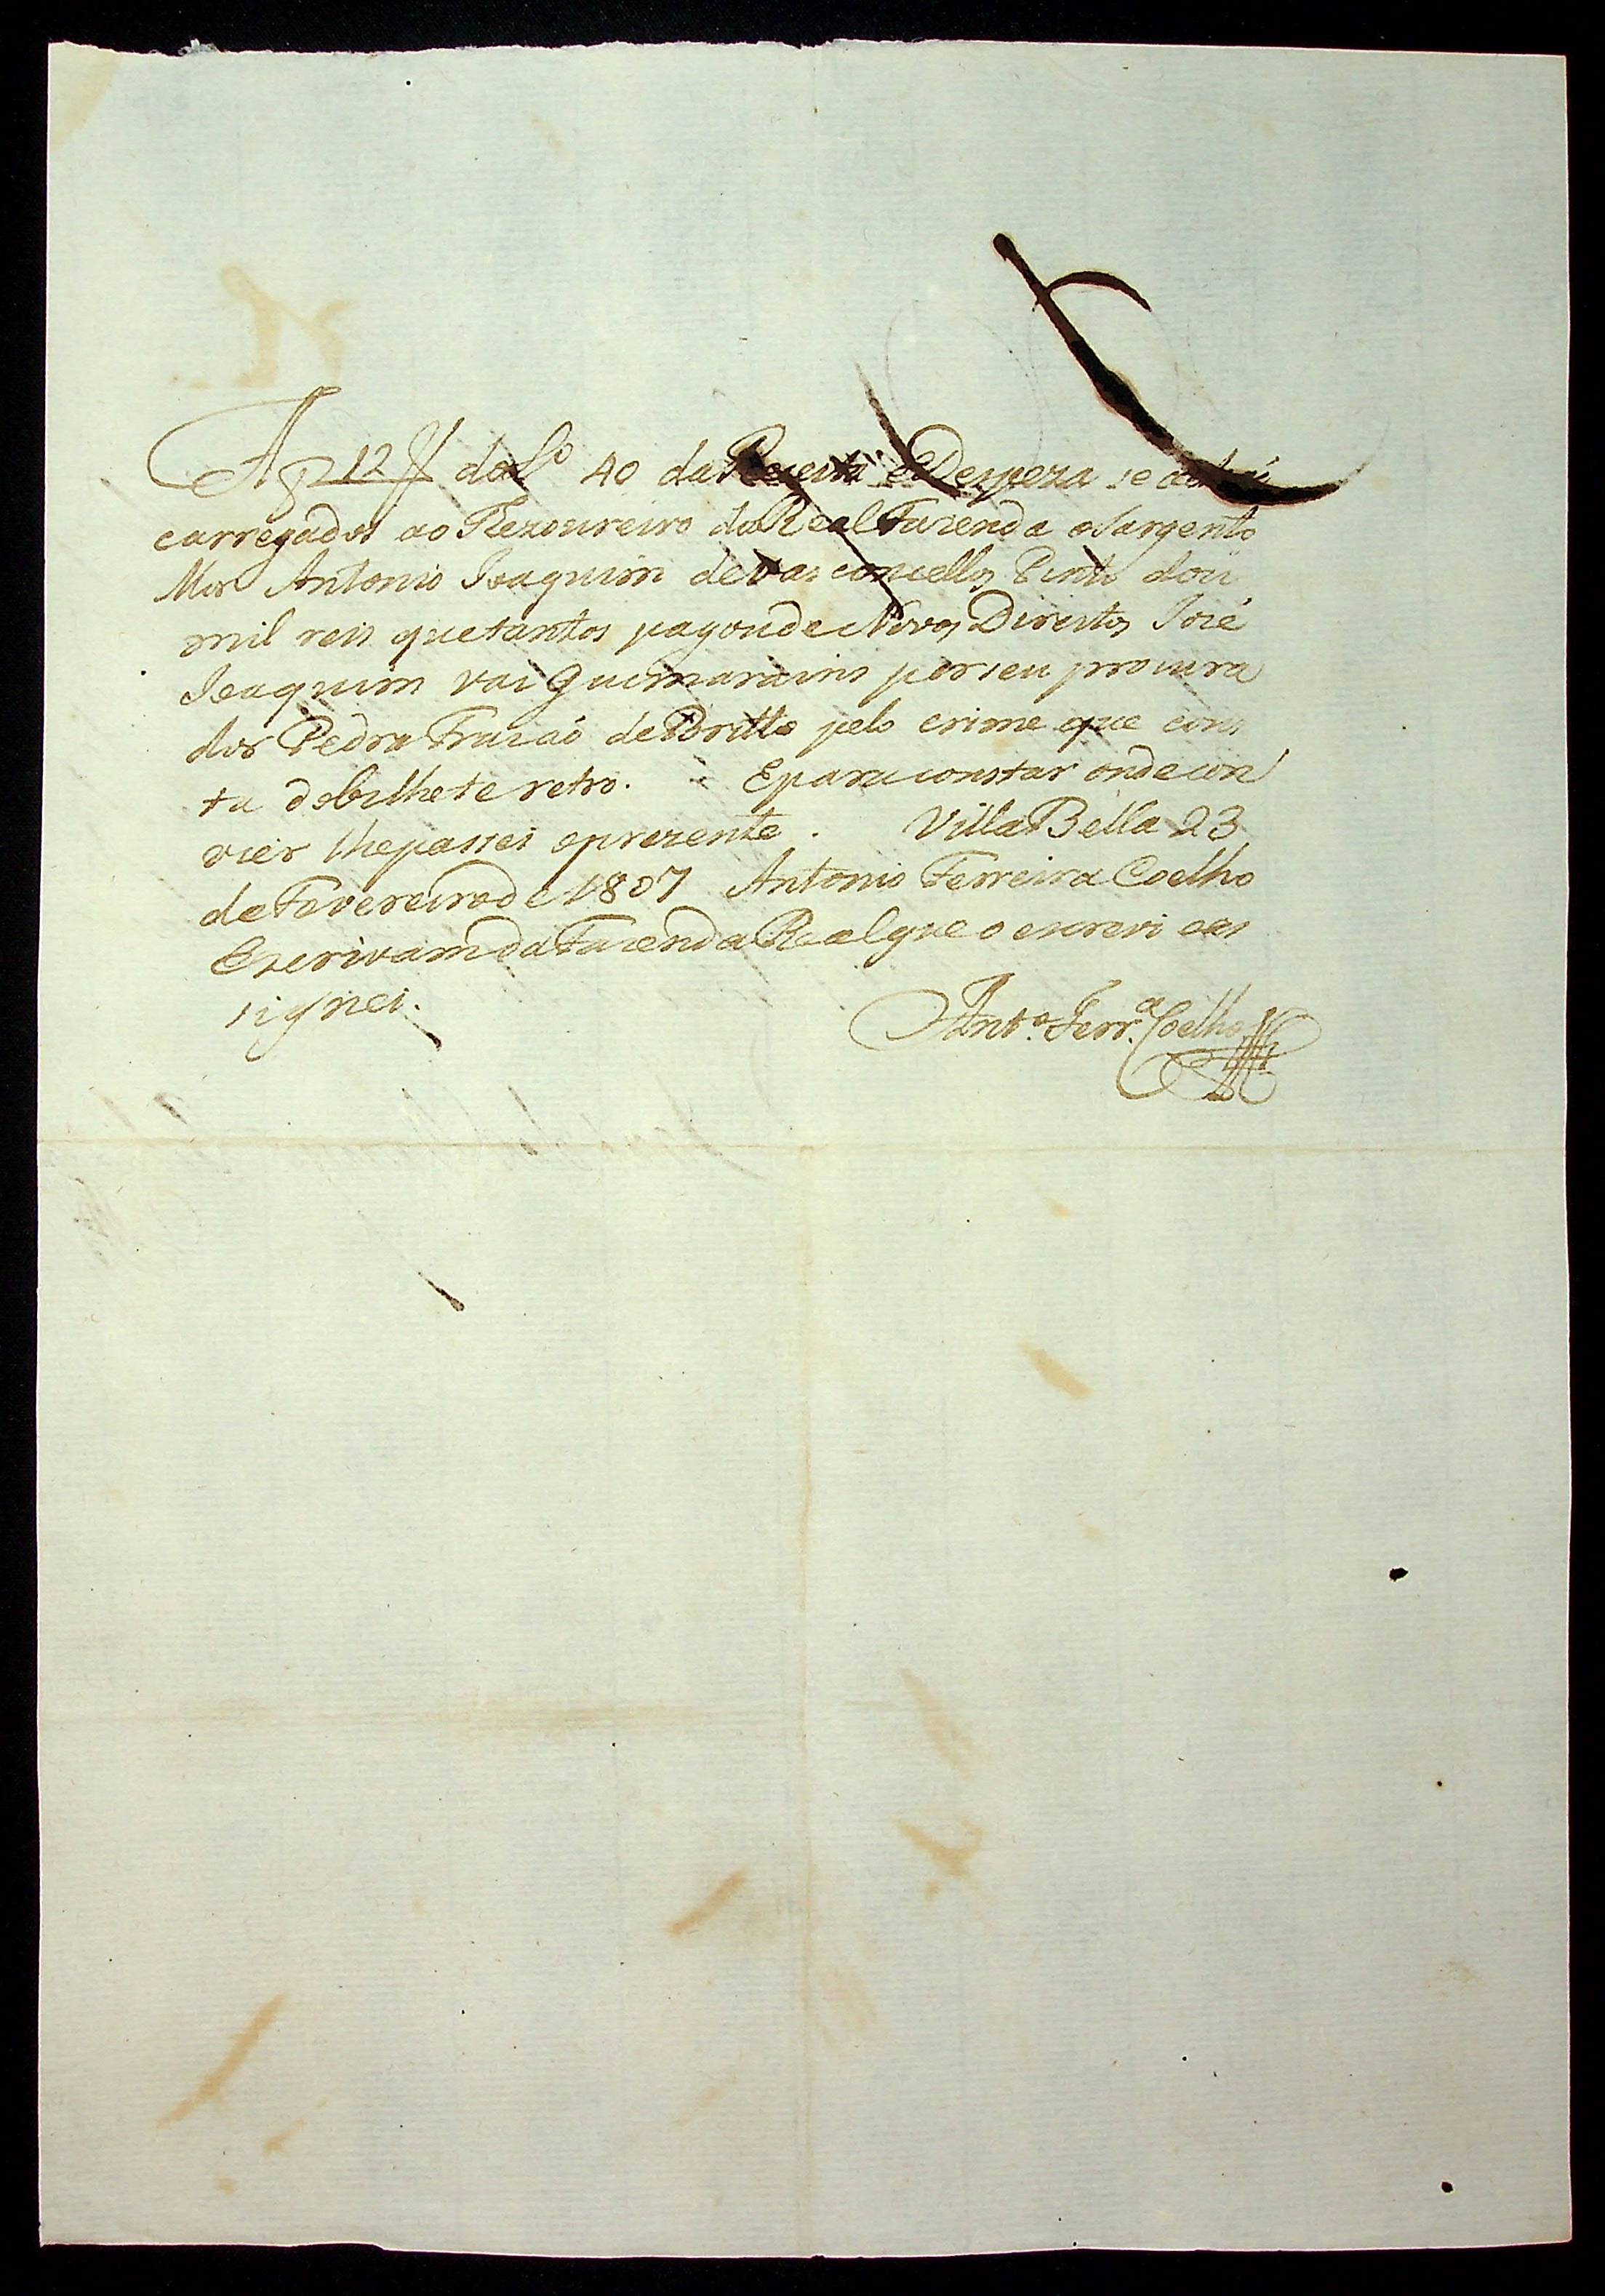 A f 12 V do L.º 40 da Receita e Despeza se acháo
carregados ao Thezoureiro da Real Fazenda o Sargento
Mor Antonio Joaquim de Vasconcellos Pinto dois
mil reis que tantos pagou de Novos Direitos José
Joaquim Vas Guimarains por seu procura
dor Pedro Frazaó de Britto pelo crime que cons
ta do bilhete retro. E para constar onde con
vier lhe passei o prezente. Villa Bella 23
de Fevereiro de 1807 Antonio Ferreira Coelho
Escrivam da Fazenda Real que o escrevi e as
signei.
Ant.º Ferr.ª Coelho